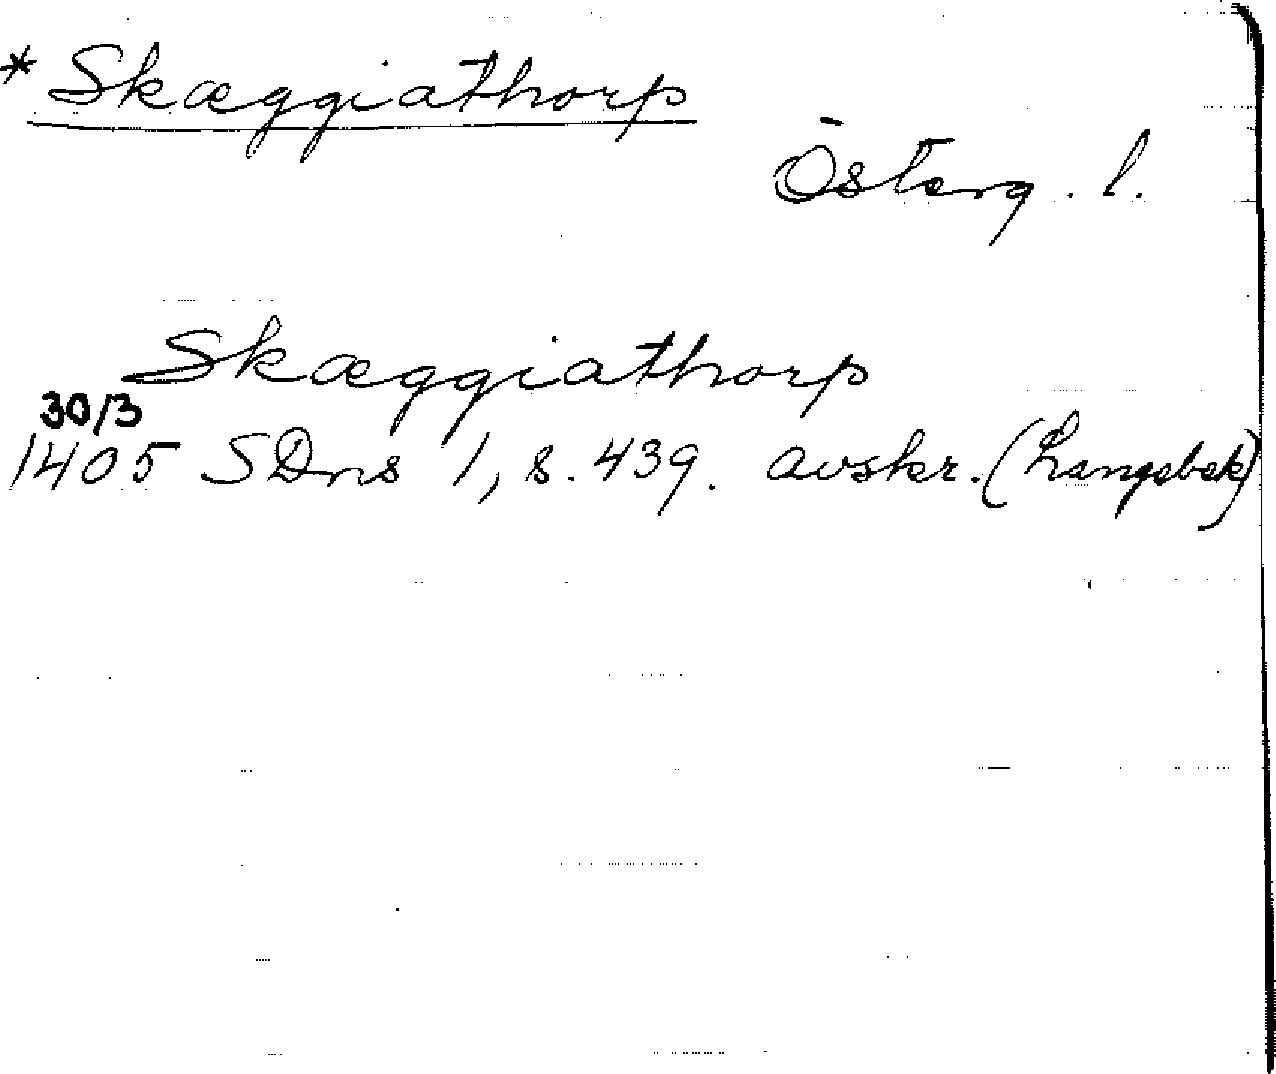 * Skæggiathorp
Österg. l.
Skæggiathorp
30/3
1405 SDns 1, s. 439. avskr. (Langebek)